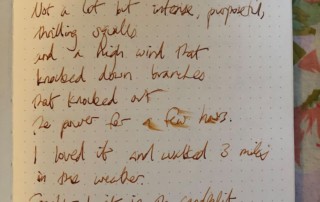 Not a lot but intense, purposeful,
thrilling squalls
and a high wind that
knocked down branches
that knocked out
the power for a few hours.
I loved it and walked 3 miles
in the weather.
it in the candlelit